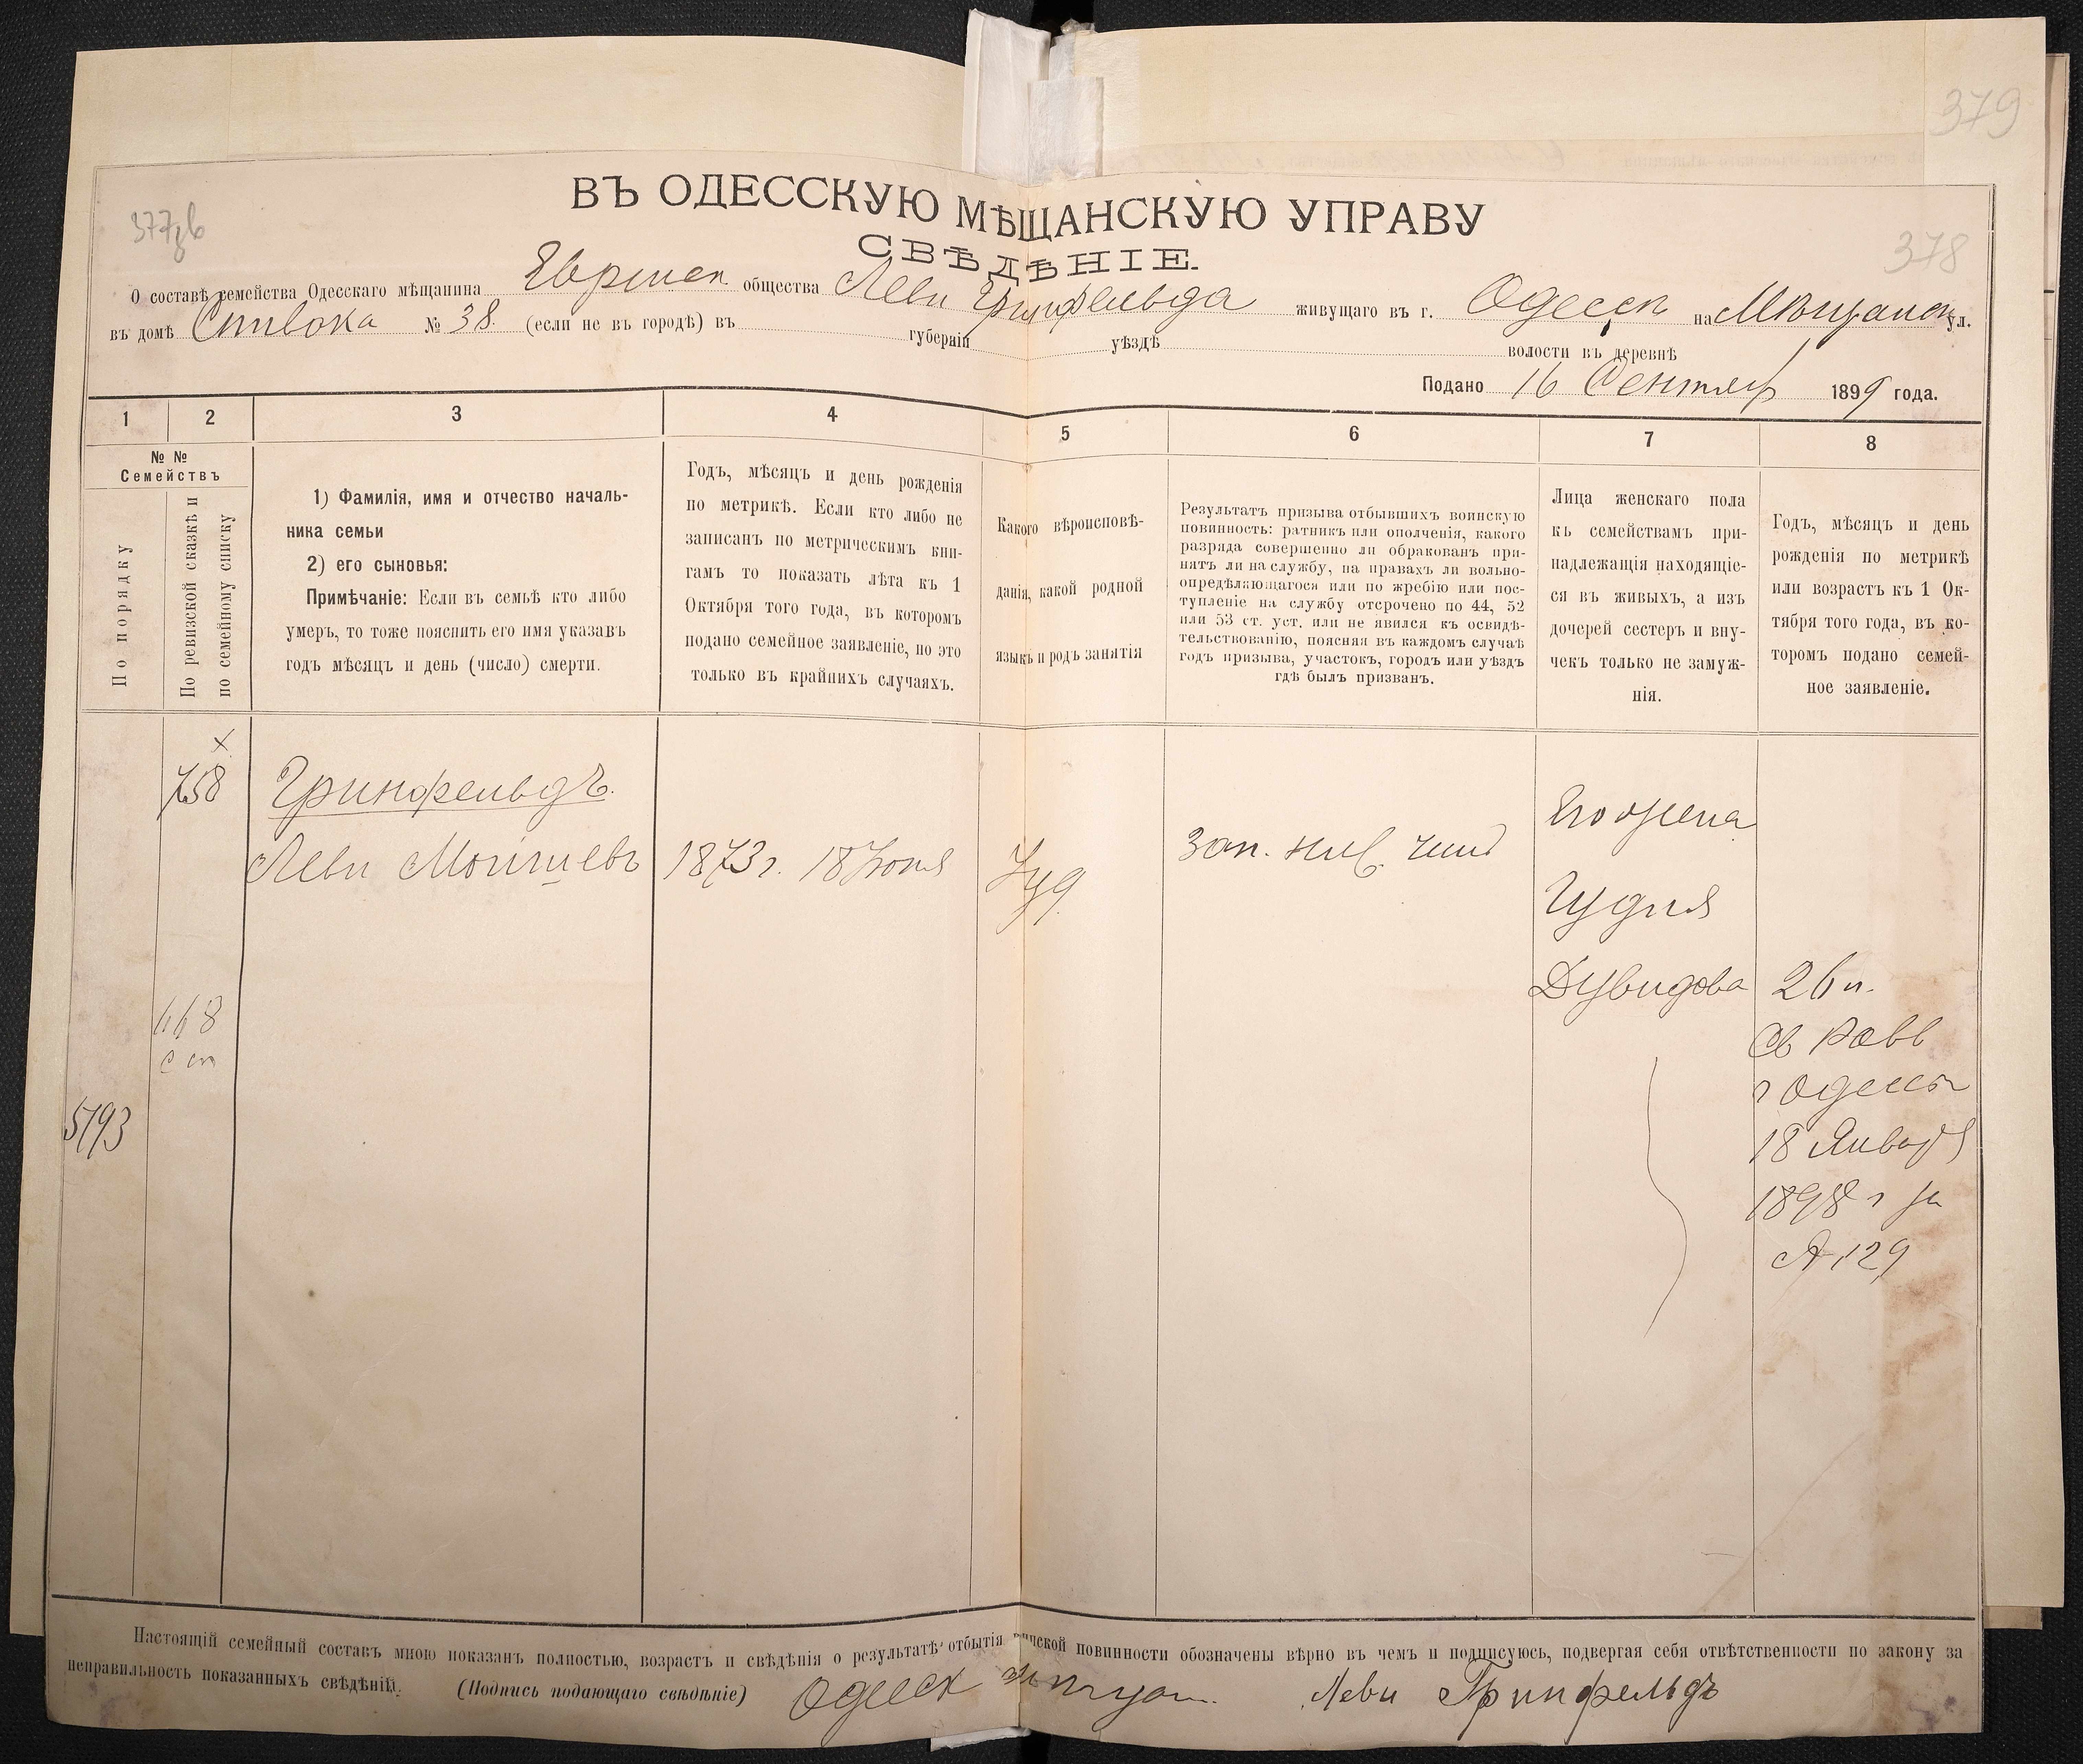 379
378
ВЪ ОДЕССКУЮ МѢЩАНСКУЮ УПРАВУ
СВѢДѢНІЕ.
О составѣ семейства Одесскаго мѣщанина Еврейск. общества Леви Гринфельда живущаго въ г. Одессѣ на Мѣщанск ул.
въ домѣ № 38. (если не въ городѣ) въ губерніи уѣздѣ волости въ деревнѣ
Подано 16 Сентяб 1899 года.
1 2 3 4 5 6 7 8
№ №
Семействъ
По порядку
По ревизской сказкѣ и
по семейному списку
1) Фамилія, имя и отчество началь-
ника семьи
2) его сыновья:
Примѣчаніе: Если въ семьѣ кто либо
умеръ, то тоже пояснить его имя указавъ
годъ мѣсяцъ и день (число) смерти.
Годъ, мѣсяцъ и день рожденія
по метрикѣ. Если кто либо не
записанъ по метрическимъ кни-
гамъ то показать лѣта къ 1
Октября того года, въ которомъ
подано семейное заявленіе, но это
только въ крайнихъ случаяхъ.
Какого вѣроисповѣ-
данія, какой родной
языкъ и родъ занятія
Результатъ призыва отбывшихъ воинскую
повинность: ратникъ или ополченія, какого
разряда совершенно ли обракованъ при-
нятъ ли на службу, на правахъ ли вольно-
опредѣляющагося или по жребію или пос-
тупленіе на службу отсрочено по 44, 52
или 53 ст. уст. или не явился къ освидѣ-
тельствованію, поясняя въ каждомъ случаѣ
годъ призыва, участокъ, городъ или уѣздъ
гдѣ былъ призванъ.
Лица женскаго пола
къ семействамъ при-
надлежащія находящіе-
ся въ живыхъ, а изъ
дочерей сестеръ и вну-
чекъ только не замуж-
нія.
Годъ, мѣсяцъ и день
рожденія по метрикѣ
или возрастъ къ 1 Ок-
тября того года, въ ко-
торомъ подано семей-
ное заявленіе.
758
Гринфельдъ.
Леви Мойшевъ
1873 г. 18 Іюня
Іуд
Зап. ниж. чинъ
Его жена
Гудля
Дувидова
26 л.
Св Равв
г Одессы
18 Января
1898 г за
№ 129
5793
Настоящій семейный составъ мною показанъ полностью, возрастъ и свѣдѣнія о результатѣ отбытія воинской повинности обозначены вѣрно въ чемъ и подписуюсь, подвергая себя отвѣтственности по закону за
неправильность показанныхъ свѣдѣній. (Подпись подающаго свѣдѣніе) Леви Гринфельдъ